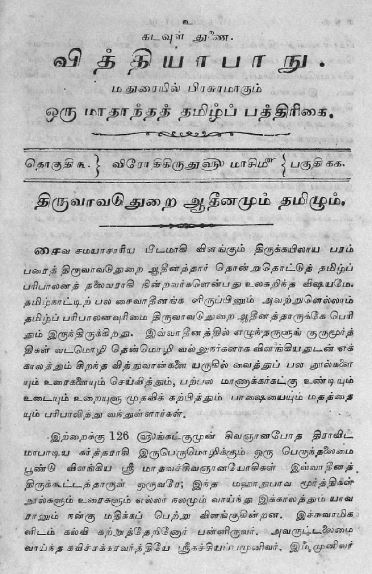 உ
கடவுள் துணை.
வித்தியாபாநு.
மதுரையில் பிரசுரமாகும்
ஒரு மாதாந்தத் தமிழ்ப் பத்திரிகை.
தொகுதி ௩. } விரோதிகிருது௵ மாசி௴ { பகுதி கக.
திருவாவடுதுறை ஆதீனமும் தமிழும்.
சைவ சமயாசாரிய பீடமாகி விளங்கும் திருக்கயிலாய பரம்
பரைத் திருவாவடுதுறை ஆதீனத்தார் தொன்றுதொட்டுத் தமிழ்ப்
பரிபாலனத் தலைவராகி நின்றவர்களென்பது உலகறிந்த விஷயமே.
தமிழ்நாட்டிற் பல சைவாதீனங்க ளிருப்பினும் அவற்றுளெல்லாம்
தமிழ்ப் பரிபாலனவுரிமை திருவாவடுதுறை ஆதீனத்தாருக்கே பெரி
தும் இருந்திருக்கிறது. இவ்வாதீனத்தில் எழுந்தருளுங் குருமூர்த்
திகள் வடமொழி தென்மொழி வல்லுநர்களாக விளங்கியதுடன் எக்
காலத்தும் சிறந்த வித்துவான்களை யருகில் வைத்துப் பல நூல்களை
யும் உரைகளையும் செய்வித்தும், பற்பல மாணாக்கர்கட்கு உண்டியும்
உடையும் உறையுளு முதவிக் கற்பித்தும் பாஷையையும் மதத்தை
யும் பரிபாலித்து வந்துள்ளார்கள்.
இற்றைக்கு 126 ௵ங்கட்குமுன் சிவஞானபோத திராவிட
மாபாடிய கர்த்தராகி இருபெருமொழிக்கும் ஒரு பெருந்தலைமை
பூண்டு விளங்கிய ஸ்ரீ மாதவச்சிவஞானயோகிகள் இவ்வாதீனத்
திருக்கூட்டத்தாருள் ஒருவரே; இந்த மஹாநுபாவ மூர்த்திகள்
நூல்களும் உரைகளும் எல்லா நலமும் வாய்ந்து இக்காலத்தும் யாவ
ராலும் நன்கு மதிக்கப் பெற்று விளங்குகின்றன. இச்சுவாமிக
ளிடம் கல்வி கற்றுத்தேறினோர் பன்னிருவர். அவருட்டலைமை
வாய்ந்த கவிச்சக்கரவர்த்தியே ஸ்ரீகச்சியப்பமுனிவர். இம்முனிவர்